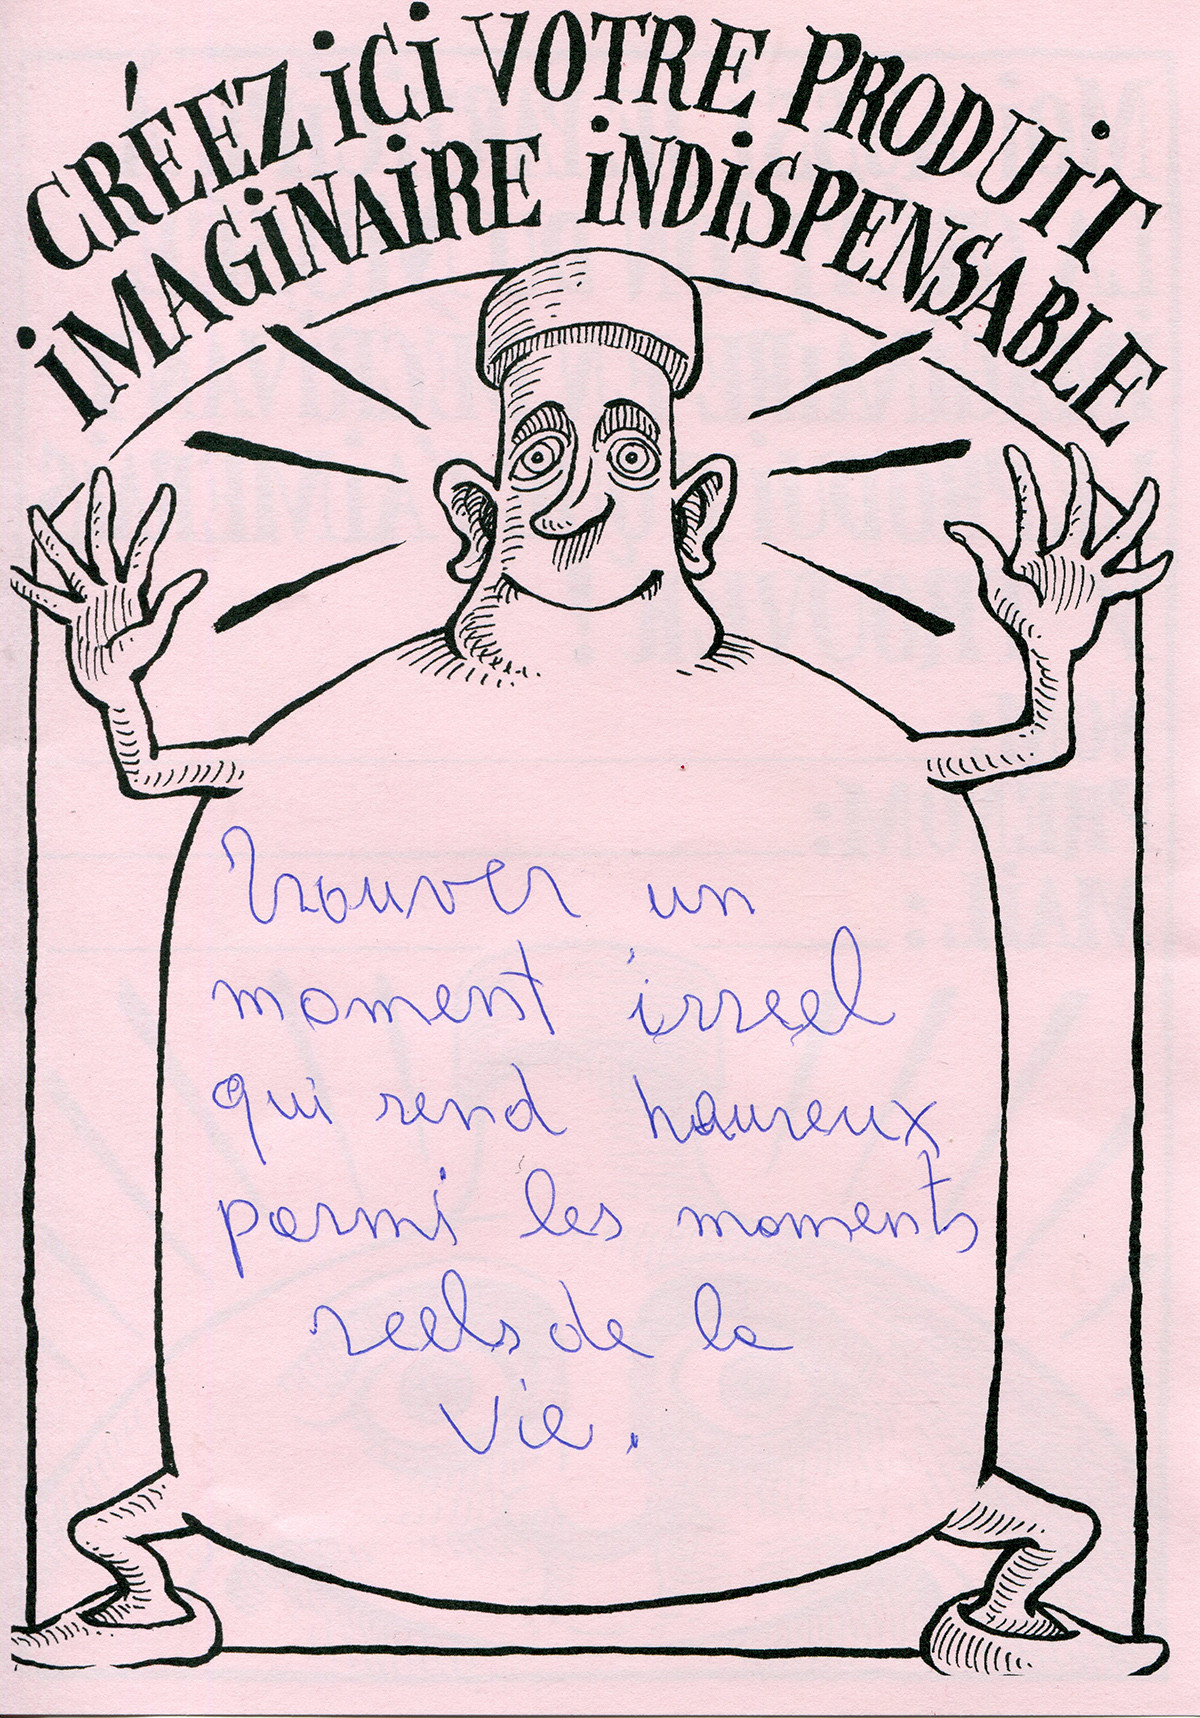 CRÉEZ iCi VOTRE PRODUiT
iMAGiNAiRE iNDiSPENSABLE
Trouver un
moment irreel
qui rend haureux
parmi les moments
reels de la
vie.